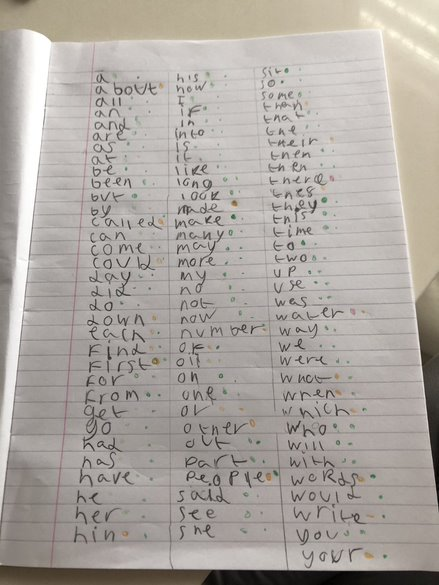 a
about
all
an
and
are
as
at
be
been
but
by
called
can
come
could
day
did
do
down
each
find
first
for
from
get
go
had
has
have
he
her
him
his
how
I
if
in
into
is
it
like
long
look
made
make
many
may
more
my
no
not
now
number
of
oil
on
one
or
other
out
part
people
said
see
she
sit
so
some
than
that
the
their
them
then
there
thes
they
this
time
to
two
up
use
was
water
way
we
were
what
when
which
who
will
with
words
would
write
you
your